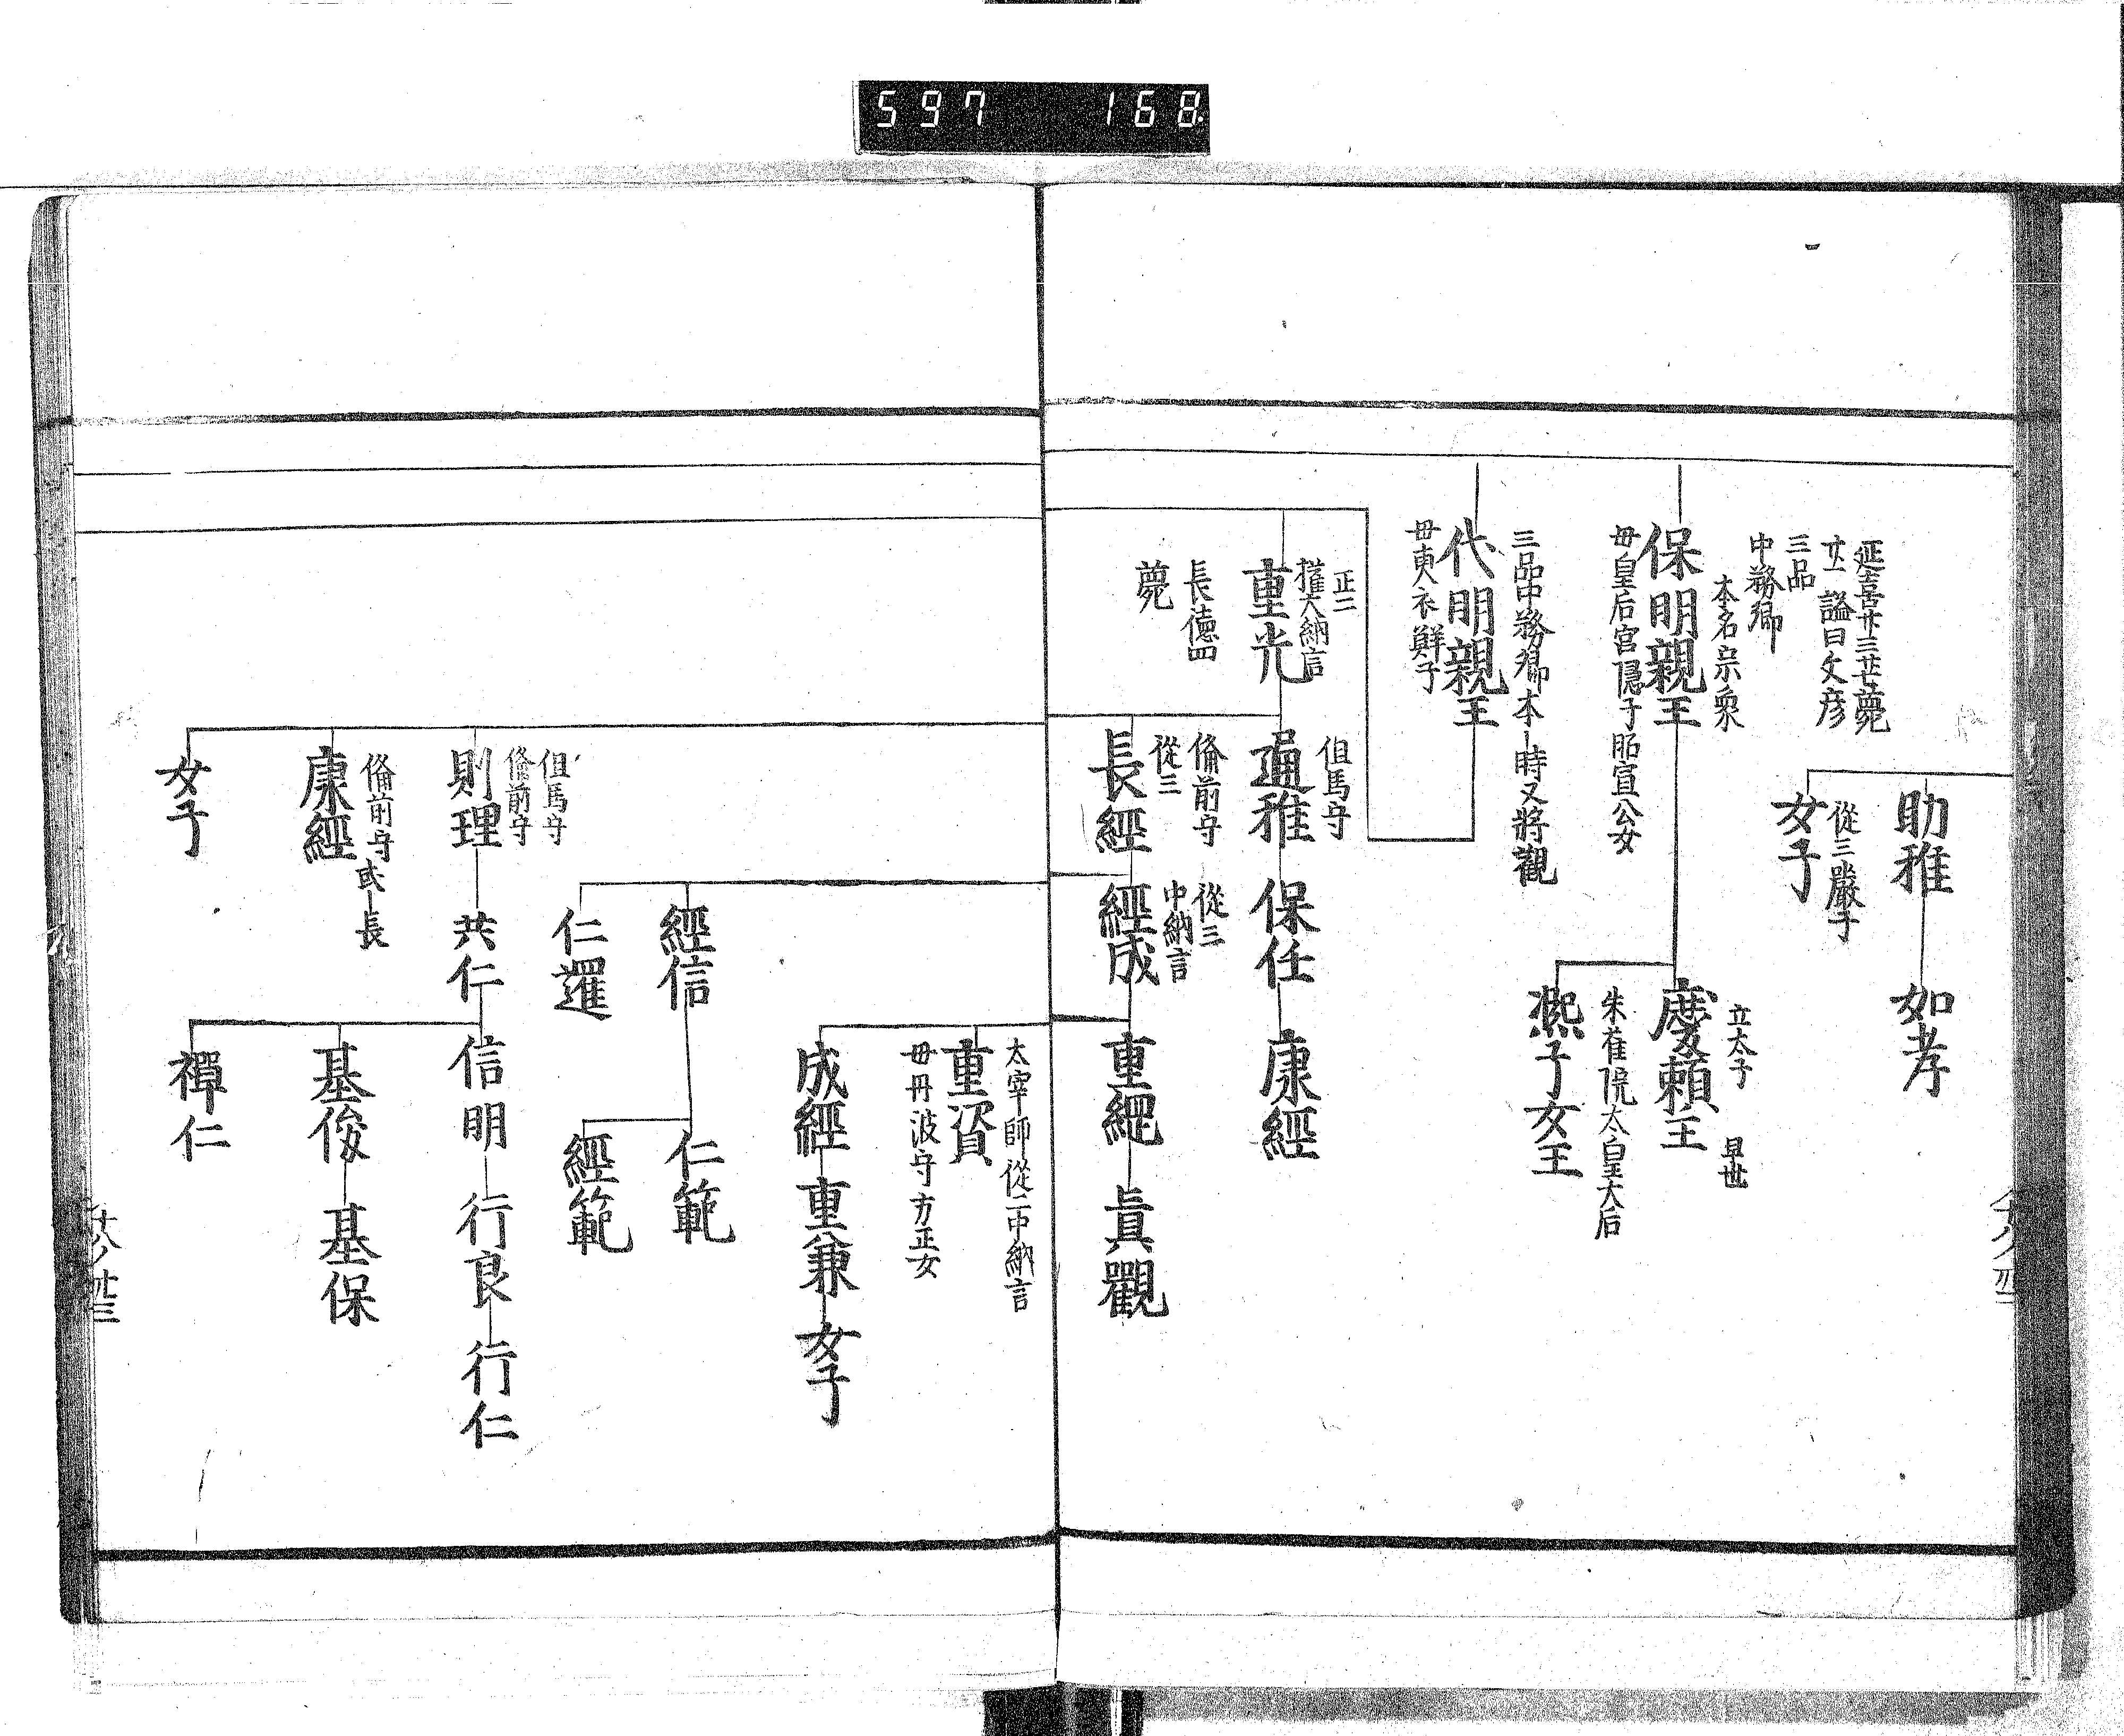 597 168
助雅
如孝
從三嚴子
女子
延喜廿三廿薨
廿一謚曰文彦
三品
中務卿
本名宗衆
保明親王
母皇后宮隠子昭宣公女
立太子 早世
慶頼王
朱雀院太皇大后
熈子女王
三品中務卿本-時又將觀
代明親王
母更衣鮮子
正二
權大納言
重光
長德四
薨
但馬守
通雅
保任
康經
備前守
從三
長經
從三
中納言
經成
重經
眞觀
太宰師從二中納言
重資
母丹波守方正女
成經
重兼
女子
經信
仁範
經範
仁暹
但馬守
備前守
則理
共仁
信明
行良
行仁
基俊
基保
禪仁
備前守 或-長
康經
女子